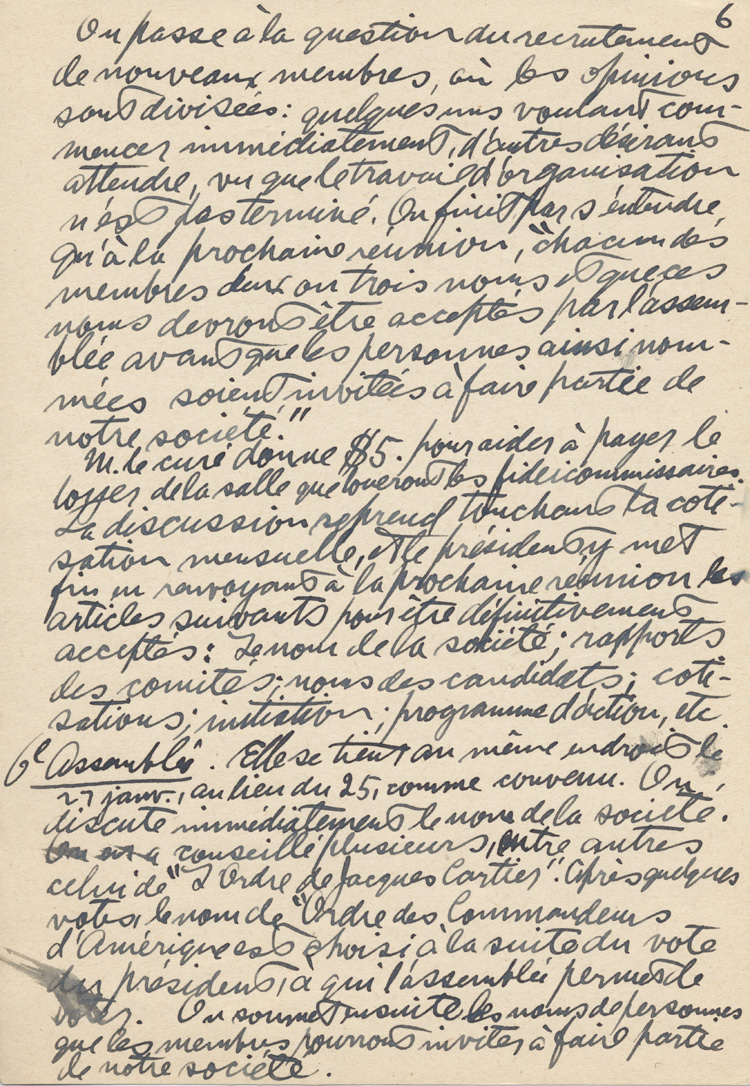 6
On passe à la question du recrutement
de nouveaux membres, où les opinions
sont divisées: quelques uns voulant com-
mencer immédiatement, d'autres désirant
attendre, vu que le travail d'organisation
n'est pas terminé. On finit par s'entendre,
qu'à la prochaine réunion, "chacun des
membres deux ou trois noms et que ces
noms devront être acceptés par l'assem-
blée avant que les personnes ainsi nom-
mées soient invitées à faire partie de
notre société."
M. le curé donne $5. pour aider à payer le
loyer de la salle que loueront les fidéicommissaires.
La discussion reprend touchant la coti-
sation mensuelle, et le président y met
fin en renvoyant à la prochaine réunion les
articles suivants pour être définitivement
acceptés: Le nom de la société; rapports
des comités; noms des candidats; coti-
sations; initiation; programme d'action, etc.
6e Assemblée. Elle se tient au même endroit le
27 janv., au lieu du 25, comme convenu. On
discute immédiatement le nom de la société.
On en a conseillé plusieurs, entre autres
celui de "L'Ordre de Jacques Cartier". Après quelques
votes, le nom de "Ordre des Commandeurs
d'Amérique est choisi à la suite du vote
du président, à qui l'assemblée permet de
voter. On soumet ensuite les noms de personnes
que les membres pourront inviter à faire partie
de notre société.